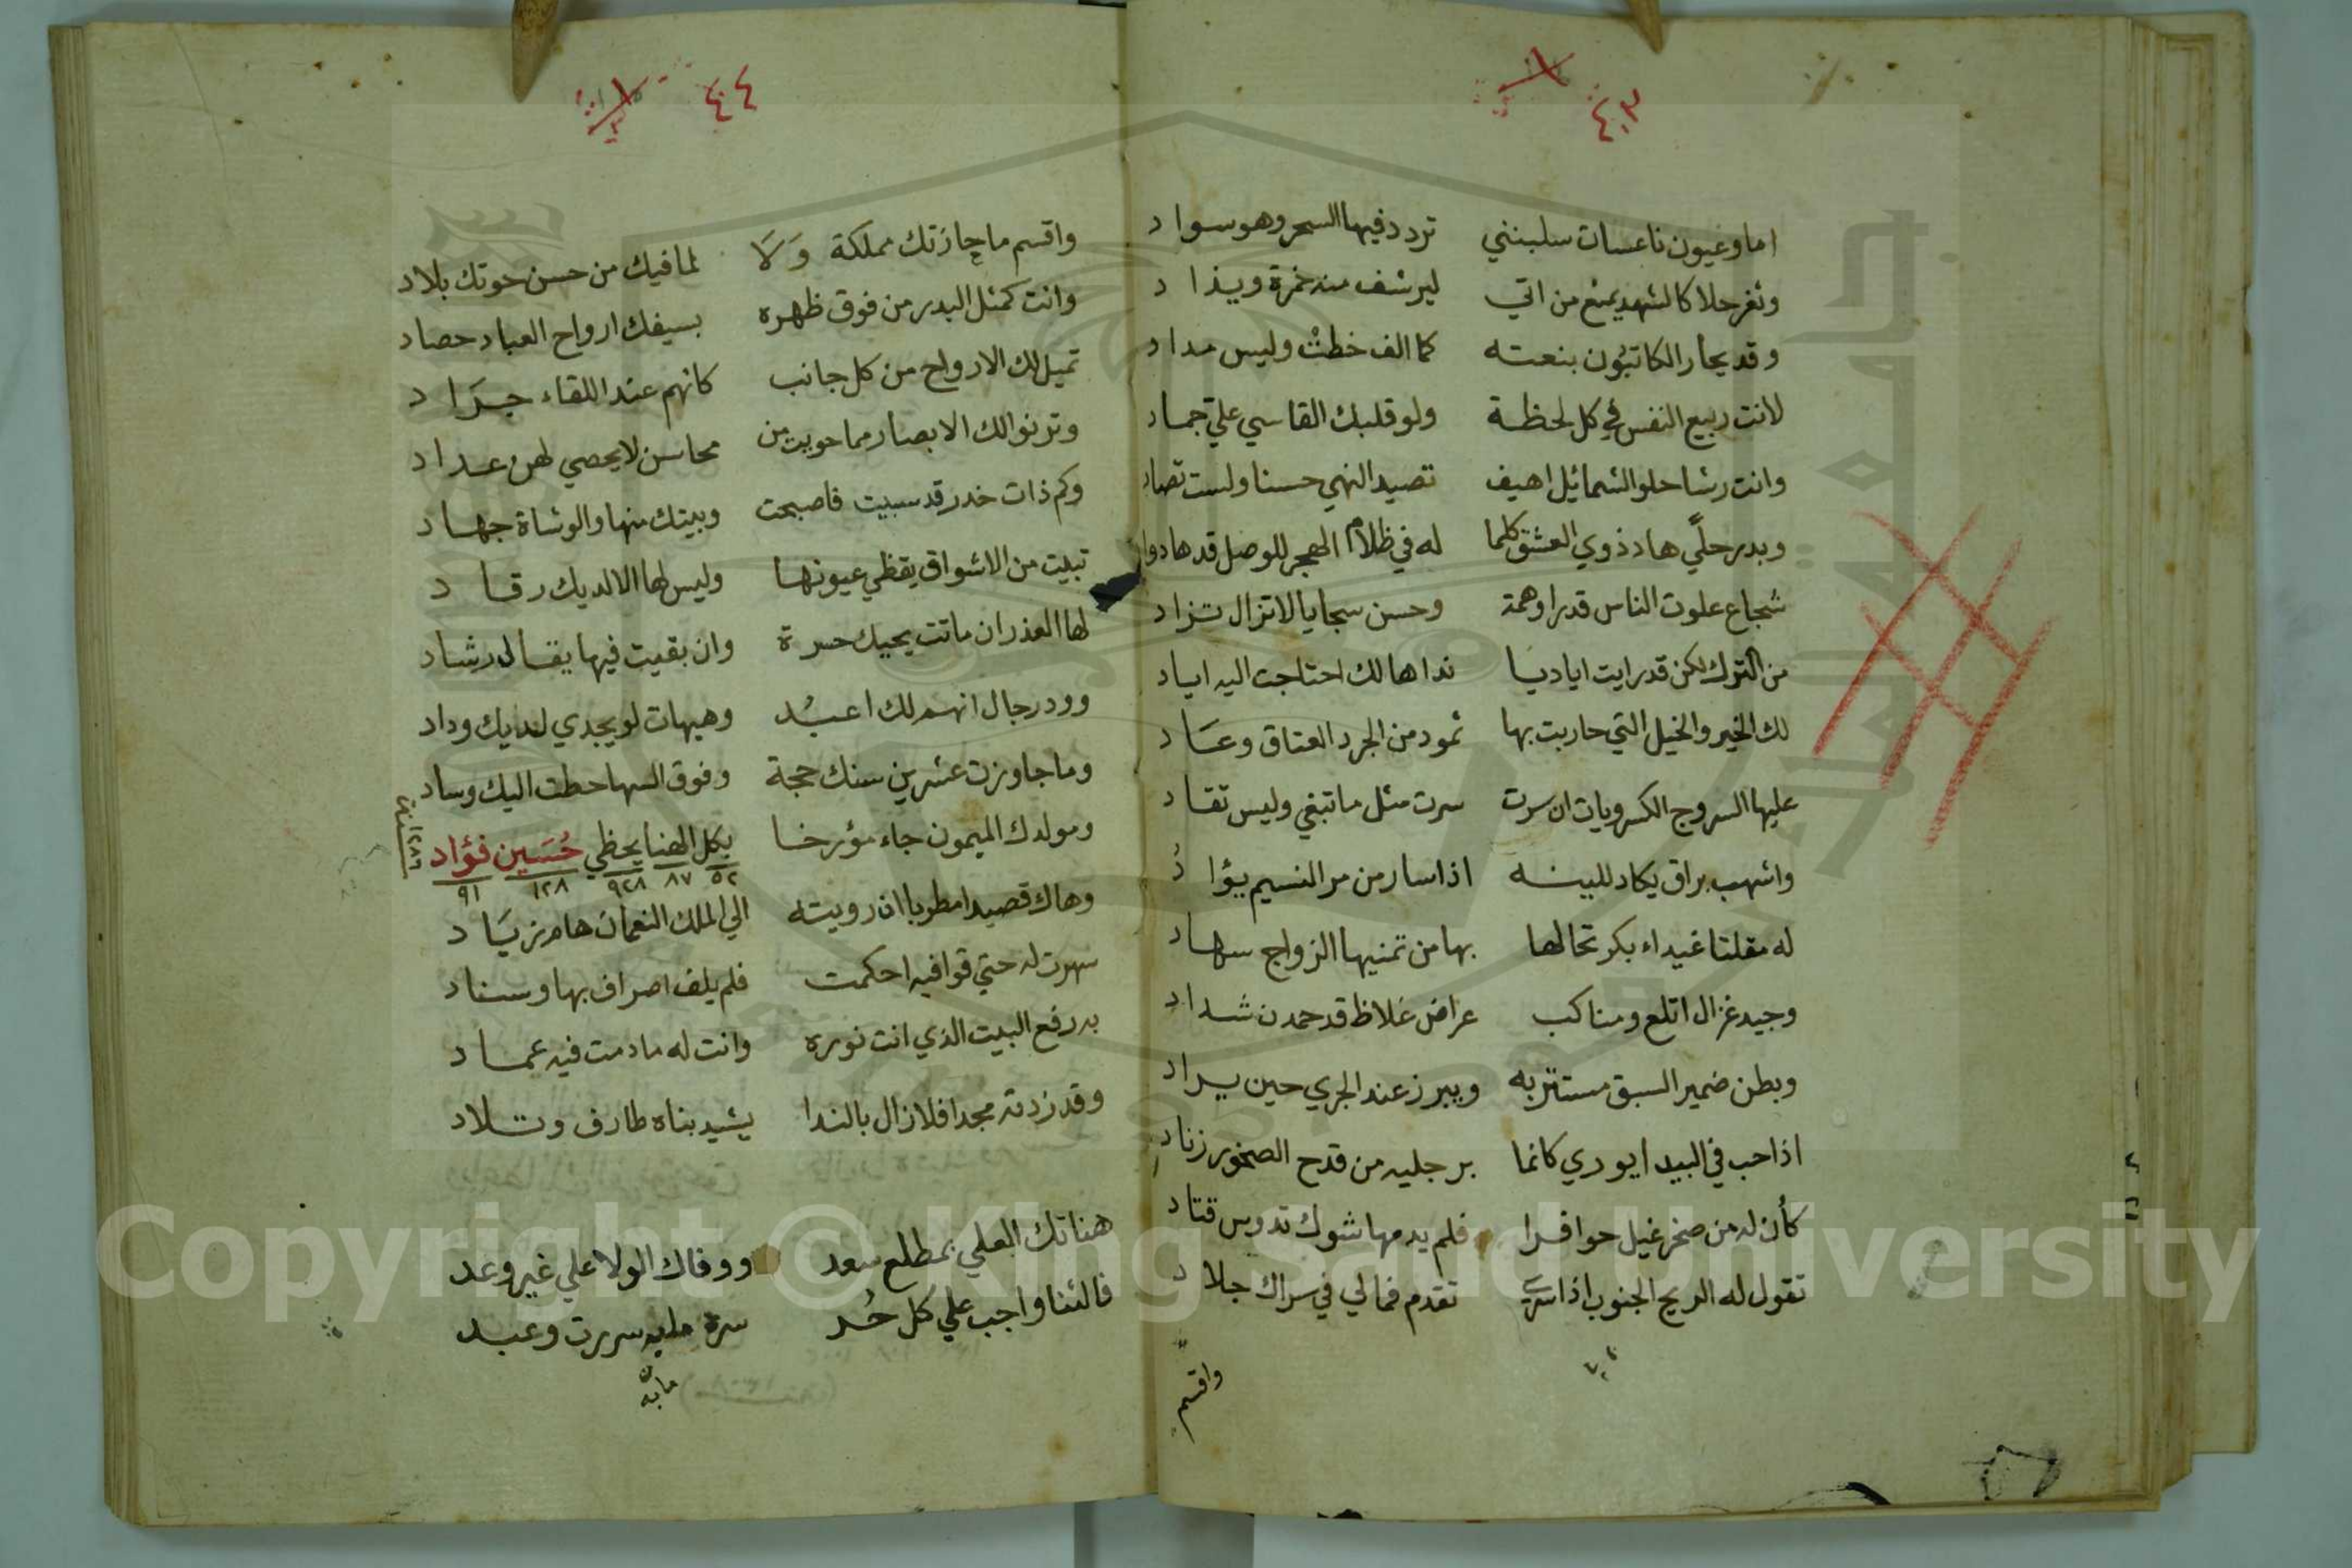 ٤٣
اما وعيون ناعسات سلبنني تردد فيها السحر وهو سواد
وثغر حلا كالشهد يمنع من اتي ليرشف منه خمرة ويذاد
وقد يحار الكاتبون بنعته كما الف خطت وليس مداد
لانت ربيع النفس في كل لحظة ولو قلبك القاسي علي جماد
وانت رشا حلو الشمائل اهيف تصيد النهي حسنا ولست تصاد
وبدر حلي هاد ذوي العشق كلما له في ظلام الهجر للوصل قد هادوا
شجاع علوت الناس قدرا وهمة وحسن سجايا لاتزال تزاد
من الترك لكن قد رايت اياديا نداها لك احتاجت اليه اياد
لك الخير والخيل التي حاربت بها ثمود من الجرد العتاق وعاد
عليها السروج الكسرويات ان سرت سرت مثل ما تبغي وليس تقاد
واشهب براق يكاد للبينه اذا سار من مر النسيم يؤاد
له مقلتا غيداء بكر تخالها بها من تمنيها الزواج سهاد
وجيد غزال اتلع ومناكب عراض غلاظ قد حمدن شداد
وبطن ضمير السبق مستتر به ويبرز عند الجري حين يراد
اذا حب في البيدا يوري كانما برجليه من قدح الصخور زناد
كأن له من صخر غيل حوافرا فلم يدمها شوك تدوس قتاد
تقول له الريح الجنوب اذا سري تقدم فمالي في سراك جلاد
واقسم
٤٤
واقسم ما جازتك مملكة ولا لما فيك من حسن حوتك بلاد
وانت كمثل البدر من فوق ظهره بسيفك ارواح العباد حصاد
تميل لك الارواح من كل جانب كانهم عند اللقاء جراد
وترنوا لك الابصار مما حويت من محاسن لايحصي لهن عداد
وكم ذات خدر قد سبيت فاصبحت وبيتك منها والوشاة جهاد
تبيت من الاشواق يقظي عيونها وليس لها الا لديك رقاد
لها العذر ان ماتت بحبك حسرة وان بقيت فيها يقال رشاد
وود رجال انهم لك اعبد وهيهات لو يجدي لديك وداد
وما جاوزت عشرين سنك حجة وفوق السها حطت اليك وساد
ومولدك الميمون جاء مؤرخا بكل الهنا يحظي حسين فؤاد
٥٢ ٨٧ ٩٢٨ ١٢٨ ٩١
سنة ١٢٨٦
وهاك قصيدا مطربا ان رويته الي الملك النعمان هام زياد
سهرت له حتي قوافيه احكمت فلم يلف اصراف بها وسناد
به رفع البيت الذي انت نوره وانت له ما دمت فيه عماد
وقد زدته مجدا فلا زال بالندا يشيد بناه طارف وتلاد
هناتك العلي بمطلع سعد ووفاك الولا علي غير وعد
فالثنا واجب علي كل حر سرة مابه سررت وعبد
مابه
Copyright © King Saud University